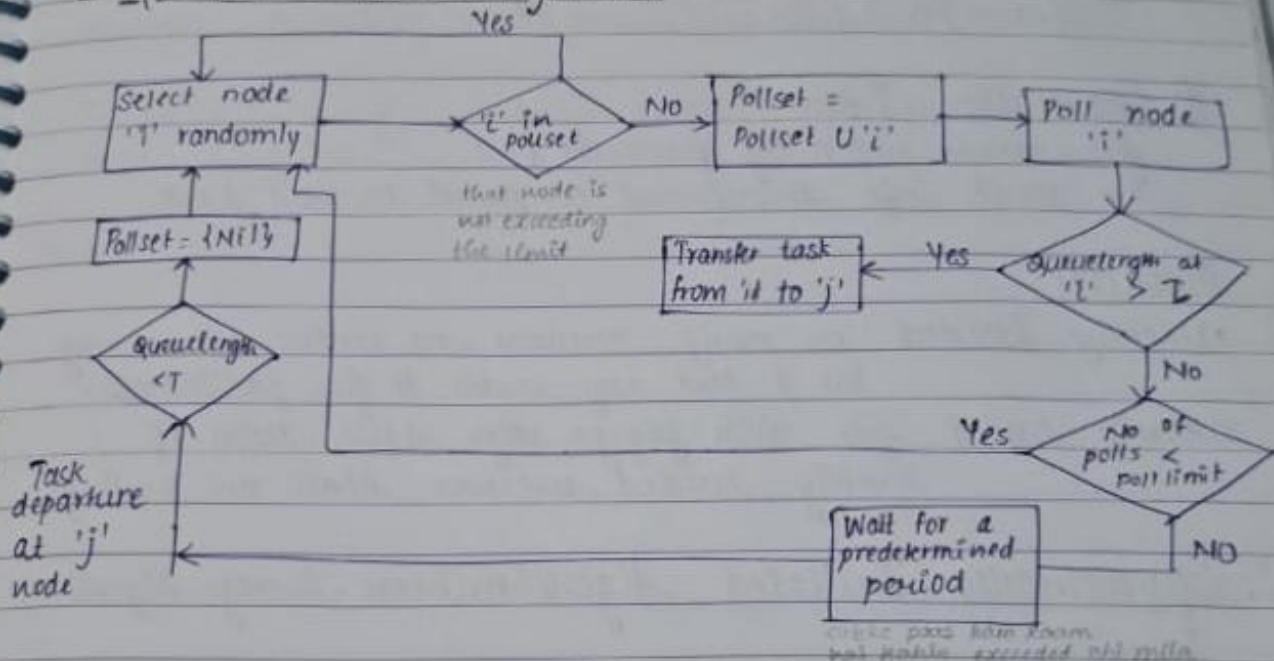 Yes
Select node
'i' randomly
'i' in
pollset
No
Pollset =
Pollset U 'i'
Poll node
'i'
that node is
not exceeding
the limit
Pollset = {Nil}
Transfer task
from 'i' to 'j'
Yes
Queuelength at
'i' > T
Queuelength
<T
No
Yes
No of
polls <
poll limit
Task
departure
at 'j'
node
Wait for a
predetermined
period
NO
paas
exceeded